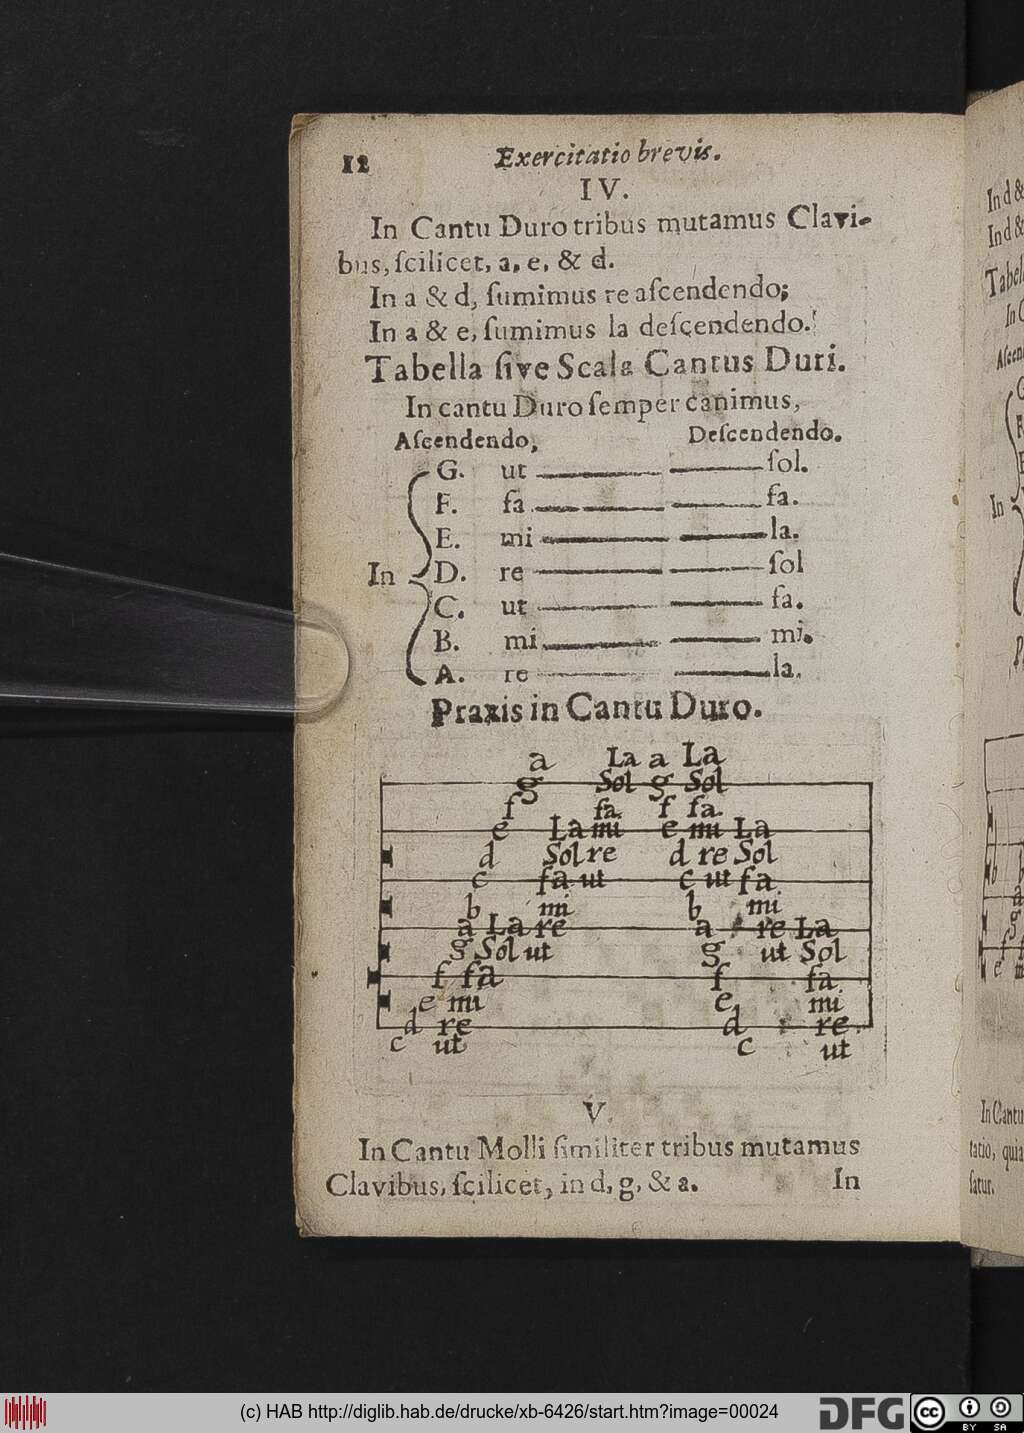 12 Exercitatio brevis.
IV.
In Cantu Duro tribus mutamus Clavi-
bus, ſcilicet, a, e, & d.
In a & d, ſumimus re aſcendendo;
In a & e, ſumimus la deſcendendo.
Tabella ſive Scala Cantus Duri.
In cantu Duro ſemper canimus,
Aſcendendo, Deſcendendo.
G. ut ſol.
F. fa fa.
E. mi la.
In D. re ſol
C. ut fa.
B. mi mi.
A. re la.
Praxis in Cantu Duro.
a La a La
g Sol g Sol
f fa f fa
e La mi e mi La
d Sol re d re Sol
c fa ut c ut fa
b mi b mi
a La re a re La
g Sol ut g ut Sol
f fa f fa
e mi e mi
d re d re
c ut c ut
V.
In Cantu Molli ſimiliter tribus mutamus
Clavibus, ſcilicet, in d, g, & a. In
In d &
In d &
Tabel
In C
Aſcen
In
b
In Cantu
tatio, quia
ſatur.
(c) HAB http://diglib.hab.de/drucke/xb-6426/start.htm?image=00024
DFG
cc
BY SA